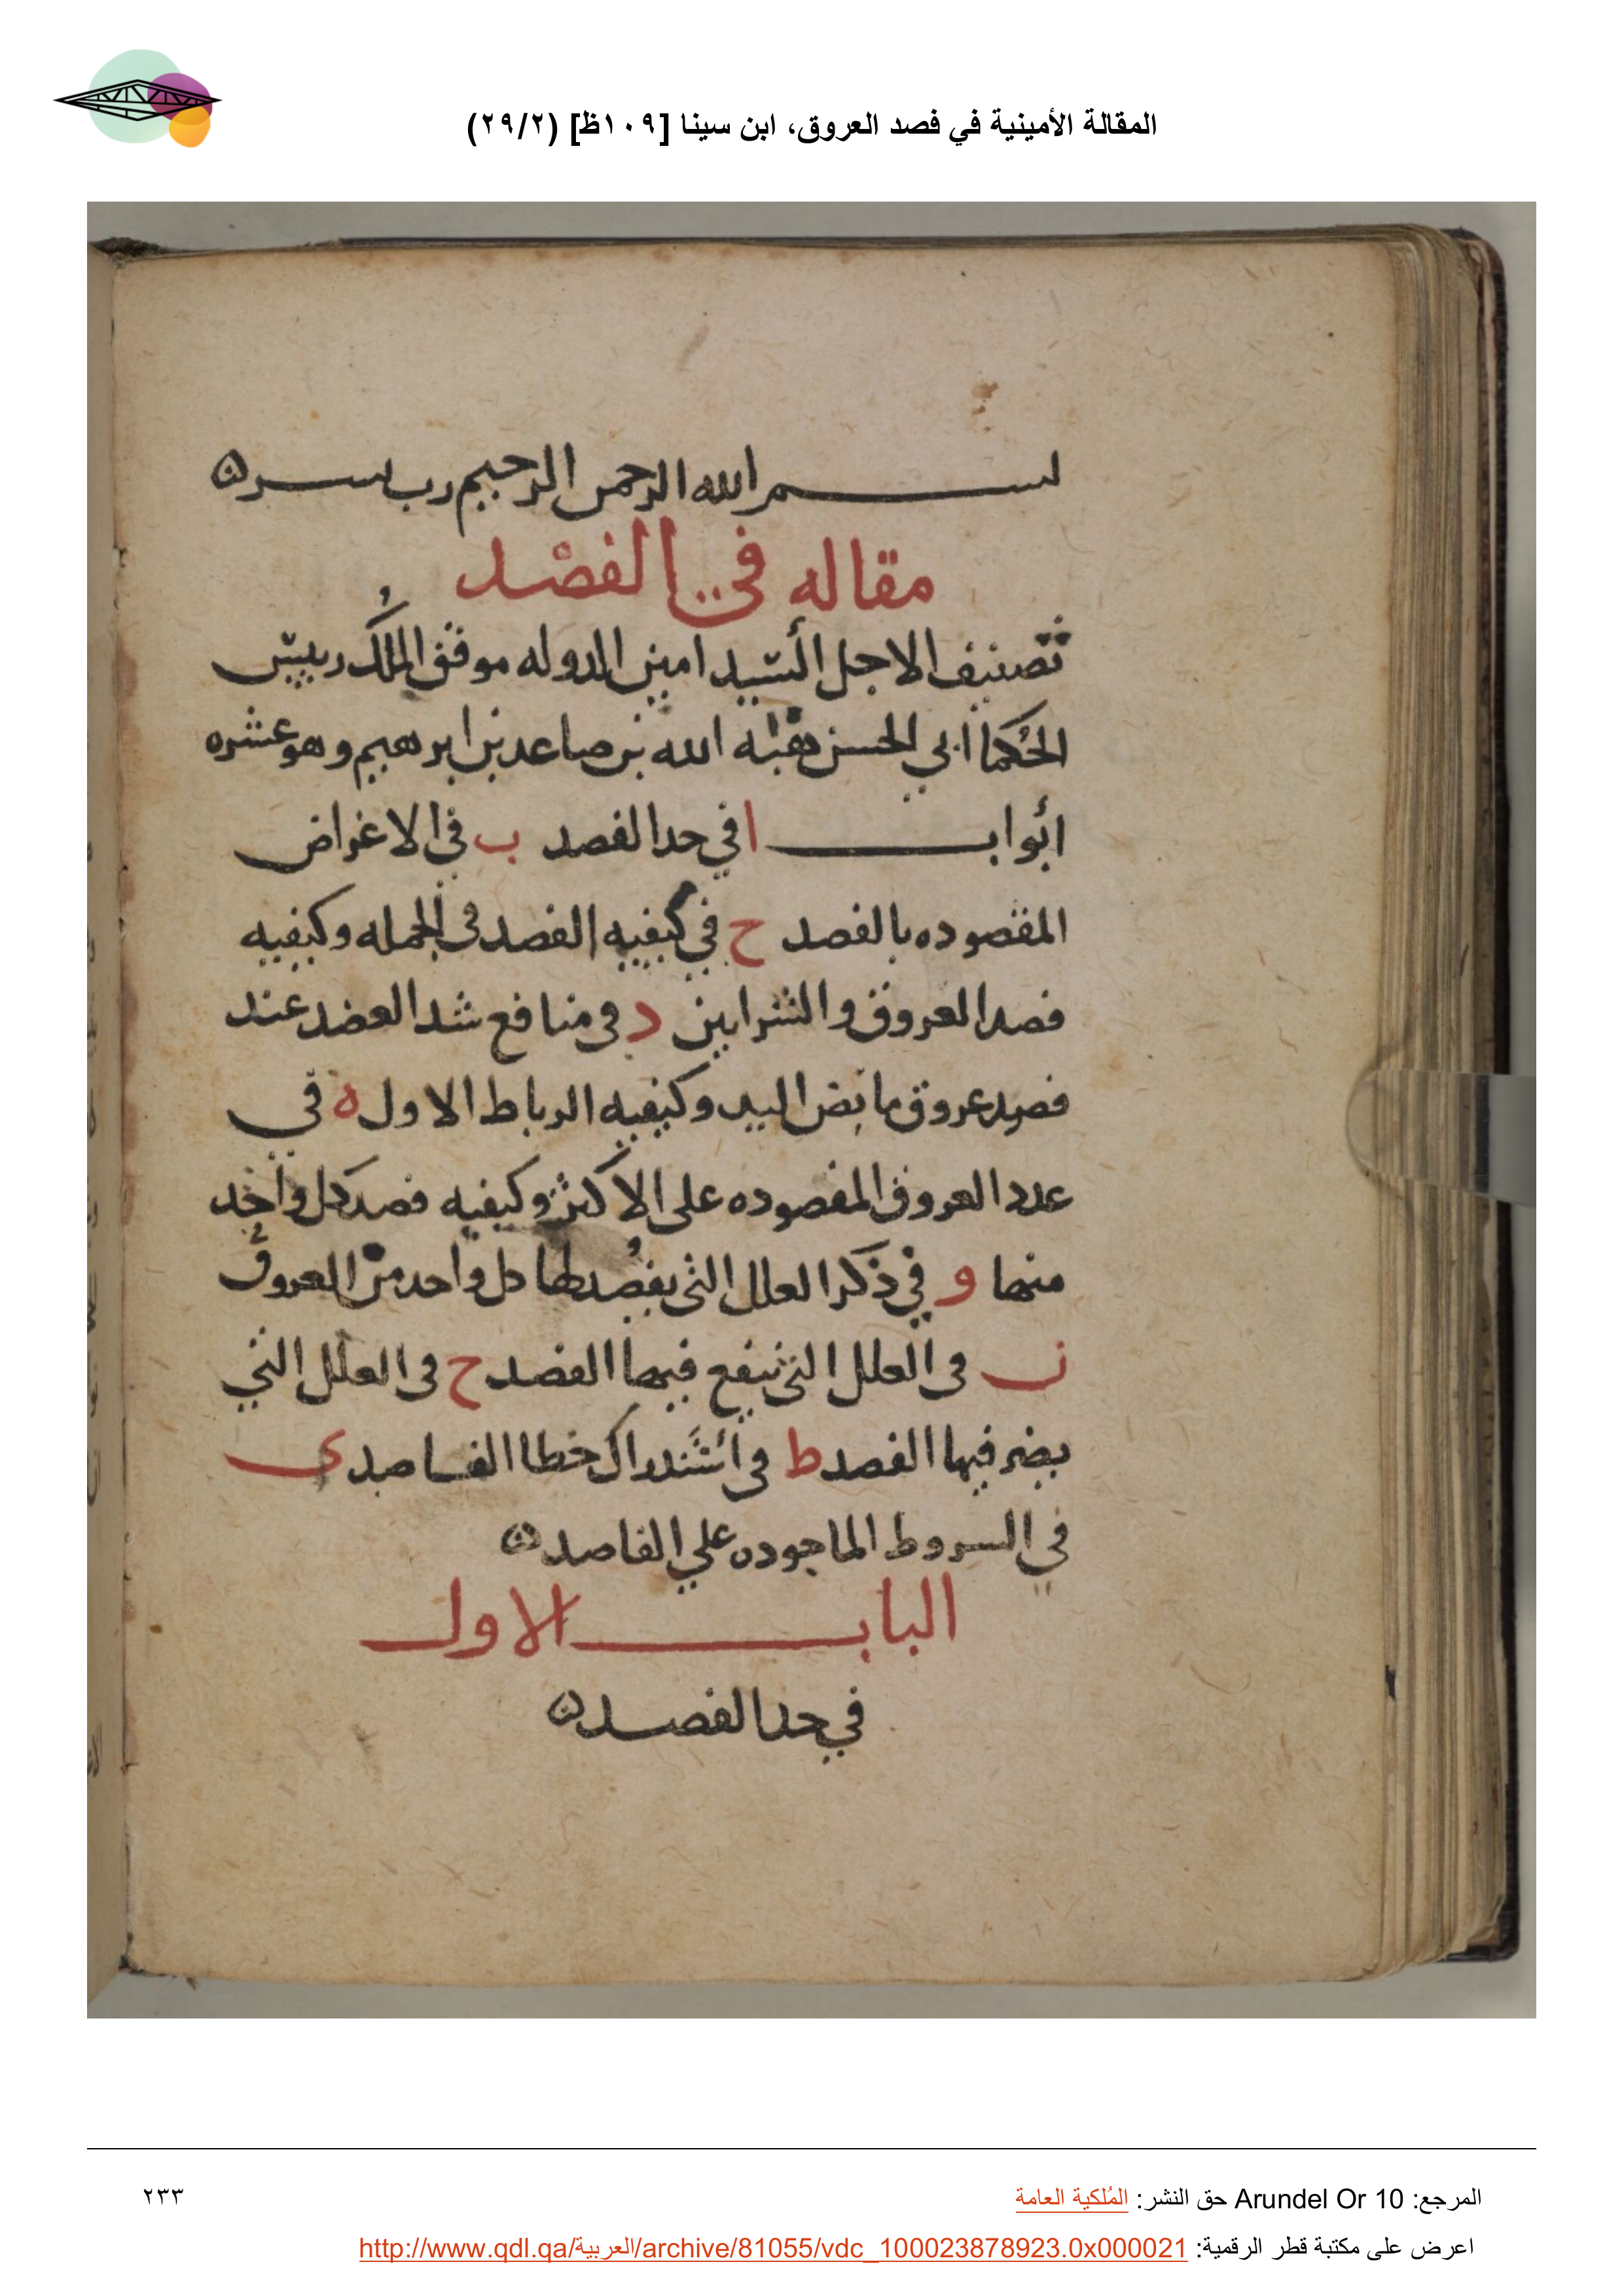 المقالة الأمينية في فصد العروق، ابن سينا [١٠٩ظ] (٢٩/٢)
بسم الله الرحمن الرحيم رب يسر ه
مقاله في الفصد
تصنيف الاجل السيد امين الدوله موفق الملك رييس
الحكما ابي الحسن هبة الله بن صاعد بن ابرهيم وهو عشره
ابواب ا في حد الفصد ب في الاغراض
المقصوده بالفصد ح في كيفيه الفصد في الجمله وكيفيه
فصد العروق والشرايين د في منافع شد العضد عند
فصد عروق مابض اليد وكيفيه الرباط الاول ه في
عدد العروق المفصوده على الاكثر وكيفيه فصد كل واحد
منها و في ذكر العلل التي يفصد لها كل واحد من العروق
ز في العلل التي ينفع فيها الفصد ح في العلل التي
يضر فيها الفصد ط في استدراك خطا الفاصد ى
في السروط الماخوده علي الفاصد ه
الباب الاول
في حد الفصد ه
المرجع: Arundel Or 10 حق النشر: المُلكية العامة
٢٣٣
اعرض على مكتبة قطر الرقمية: http://www.qdl.qa/العربية/archive/81055/vdc_100023878923.0x000021